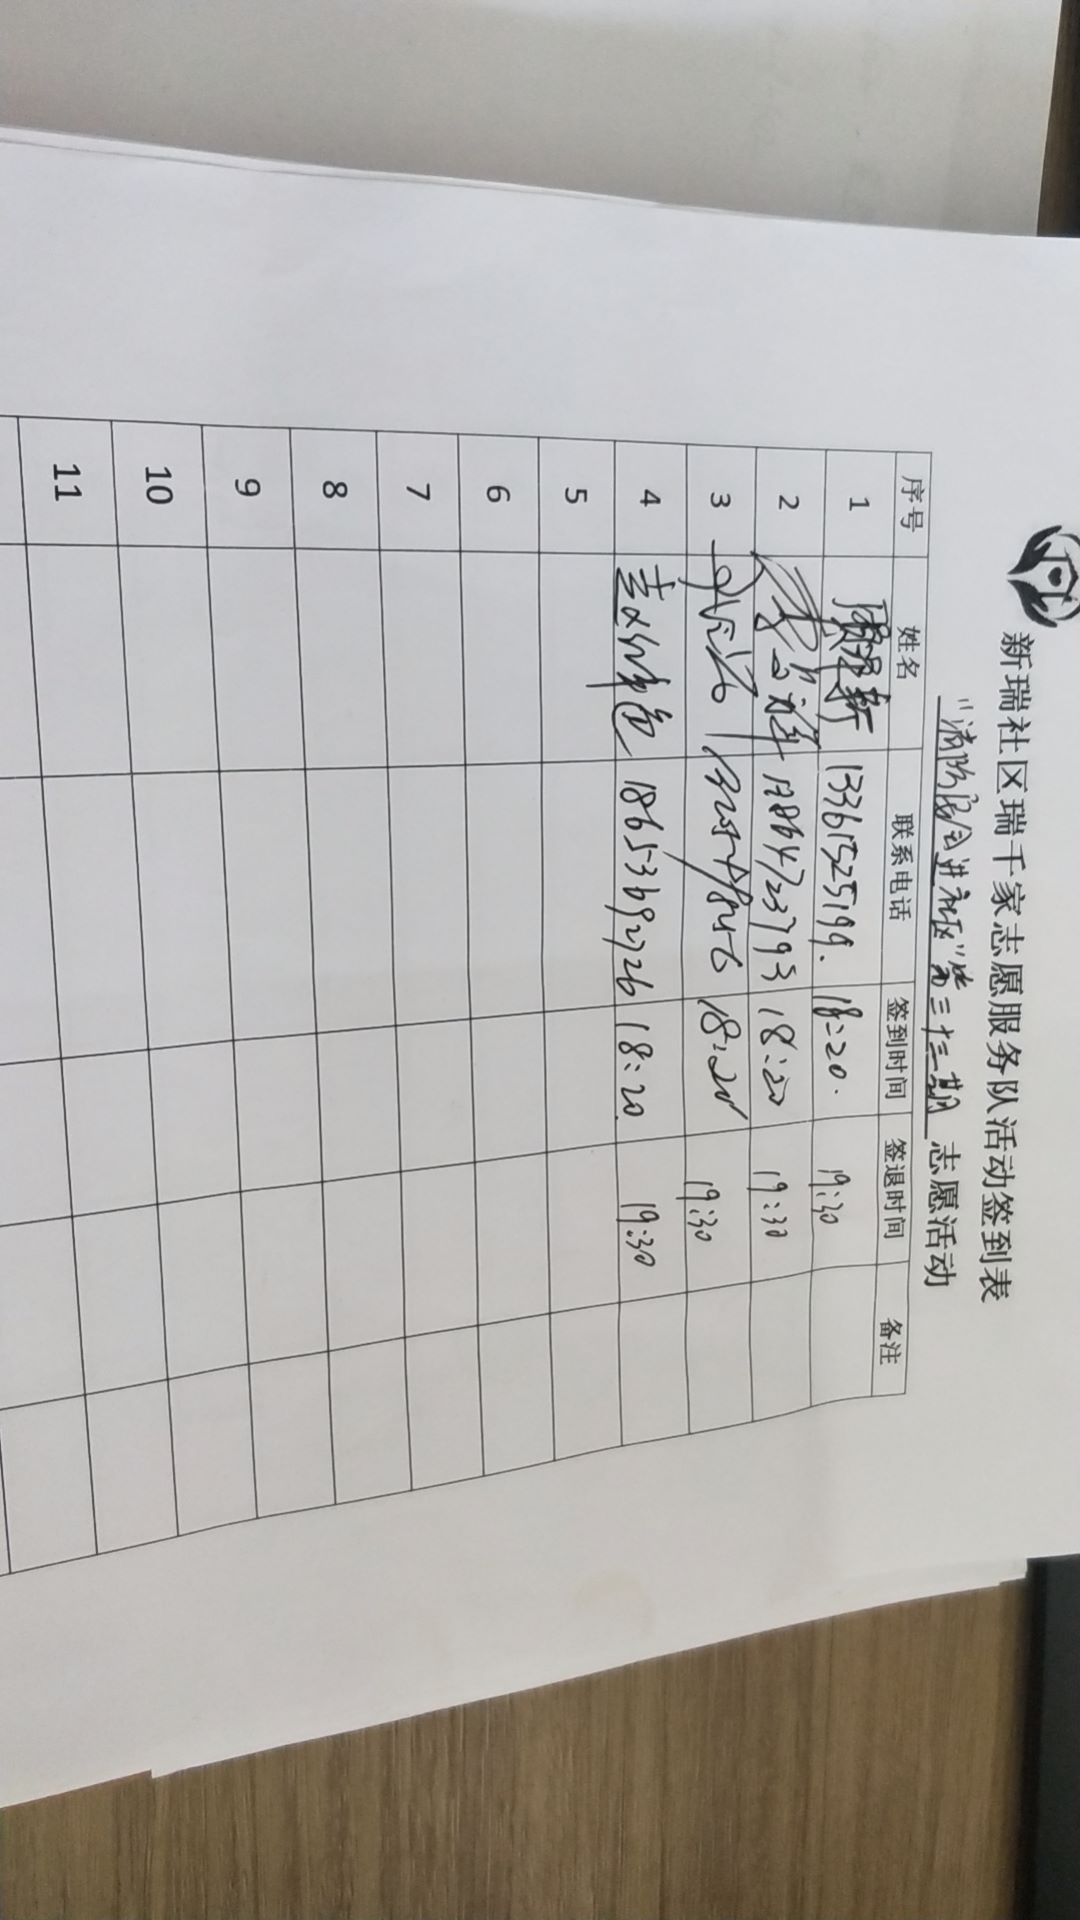 新瑞社区瑞千家志愿服务队活动签到表
"消防安全进社区"第三十三期 志愿活动
序号 姓名 联系电话 签到时间 签退时间 备注
1 13361525199. 18:20. 19:30
2 17864723793 18:20 19:30
3 18:20 19:30
4 18653692726 18:20 19:30
5
6
7
8
9
10
11